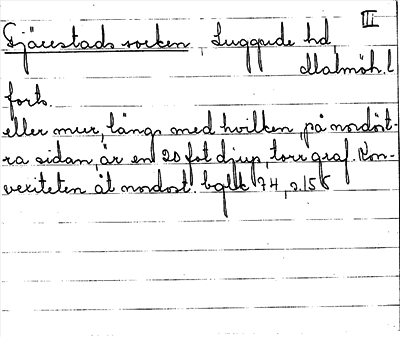 III
Fjärestads socken, Luggude hd,
Malmöh. l
forts.
eller mur, längs med hvilken, på nordöst-
ra sidan, är en 20 fot djup, torr graf. Kon-
vexiteten åt nordost.
74, s. 158